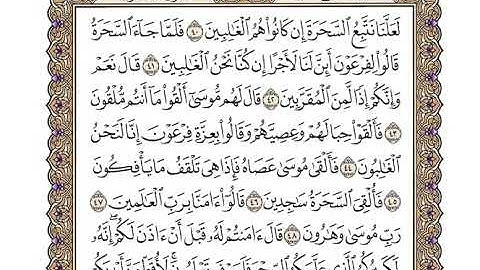 لَعَلَّنَا نَتَّبِعُ ٱلسَّحَرَةَ إِن كَانُوا۟ هُمُ ٱلْغَـٰلِبِينَ ٤٠ فَلَمَّا جَآءَ ٱلسَّحَرَةُ
قَالُوا۟ لِفِرْعَوْنَ أَئِنَّ لَنَا لَأَجْرًا إِن كُنَّا نَحْنُ ٱلْغَـٰلِبِينَ ٤١ قَالَ نَعَمْ
وَإِنَّكُمْ إِذًا لَّمِنَ ٱلْمُقَرَّبِينَ ٤٢ قَالَ لَهُم مُّوسَىٰٓ أَلْقُوا۟ مَآ أَنتُم مُّلْقُونَ
٤٣ فَأَلْقَوْا۟ حِبَالَهُمْ وَعِصِيَّهُمْ وَقَالُوا۟ بِعِزَّةِ فِرْعَوْنَ إِنَّا لَنَحْنُ
ٱلْغَـٰلِبُونَ ٤٤ فَأَلْقَىٰ مُوسَىٰ عَصَاهُ فَإِذَا هِىَ تَلْقَفُ مَا يَأْفِكُونَ
٤٥ فَأُلْقِىَ ٱلسَّحَرَةُ سَـٰجِدِينَ ٤٦ قَالُوٓا۟ ءَامَنَّا بِرَبِّ ٱلْعَـٰلَمِينَ ٤٧
رَبِّ مُوسَىٰ وَهَـٰرُونَ ٤٨ قَالَ ءَامَنتُمْ لَهُۥ قَبْلَ أَنْ ءَاذَنَ لَكُمْ ۖ إِنَّهُۥ